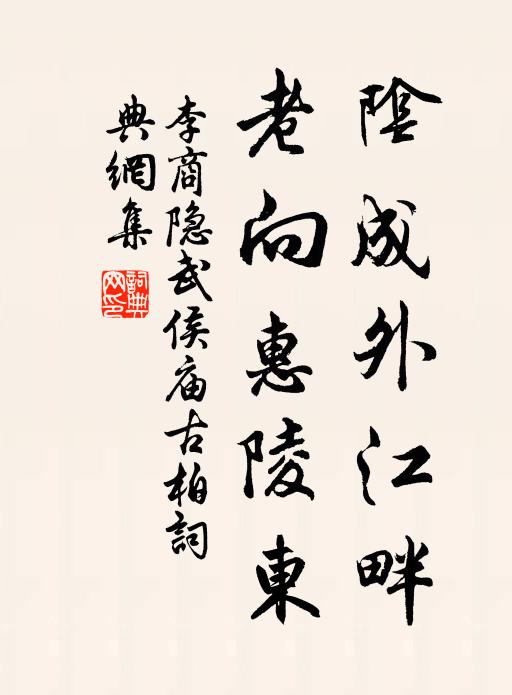 陰成外江畔
老向惠陵東
李商隐武侯庙古柏詞
典網集
詞典
网印